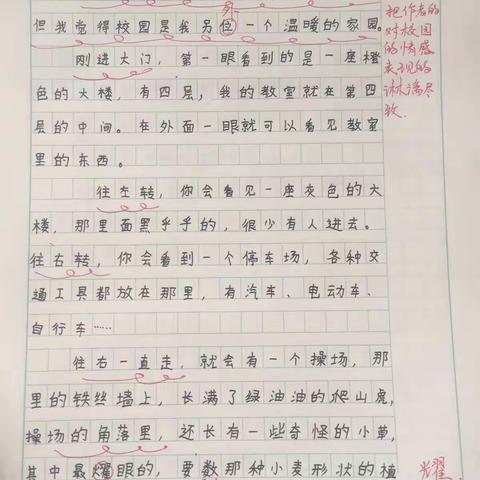 但我觉得校园是我另位一个温暖的家园。
刚进大门,第一眼看到的是一座橙
色的大楼,有四层,我的教室就在第四
层的中间。在外面一眼就可以看见教室
里的东西。
往左转,你会看见一座灰色的大
楼,那里面黑乎乎的,很少有人进去。
往右转,你会看到一个停车场,各种交
通工具都放在那里,有汽车、电动车、
自行车……
往右一直走,就会有一个操场,那
里的铁丝墙上,长满了绿油油的爬山虎,
操场的角落里,还长有一些奇怪的小草,
其中最耀眼的,要数那种小麦形状的植
把作者的
对校园
的情感
表现的
淋漓尽
致.
光翟